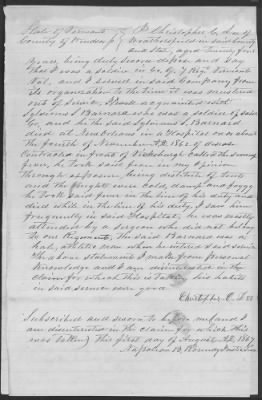 State of Vermont } I Christopher C. Dow of
County of Windsor } in said County
and State, aged Twenty four
years, being duly sworn depose and say
that I was a soldier in Co. G, 7 Reg. Vermont
Vol, and I served in said Company from
its organization to the time it was mustered
out of service, I was acquainted with
Sylvanus S Barnard who was a soldier of said
Co, and the said Sylvanus S Barnard
died at New Orleans in a Hospital on or about
the fourth of November A.D. 1862 of disease
Contracted in front of Vicksburgh called the swamp
fever, he took said fever in my Opinion
through exposure, being destitute of tents
and the nights were cold, damp and foggy
he took said fever in the line of his duty and
died while in the line of his duty, I saw him
frequently in said Hospital, he was mostly
attended by a surgeon who did not belong
to our Regiment. The said Barnard was a
hale, athletic man when he entered said service
The above statement I make from personal
Knowledge and I am disinterested in the
claim for which this is taken, his habits
in said service were good.
Christopher C.
Subscribed and sworn to before me and I
am disinterested in the claim for which this
was taken this first day of August A.D. 1867
Napoleon B.